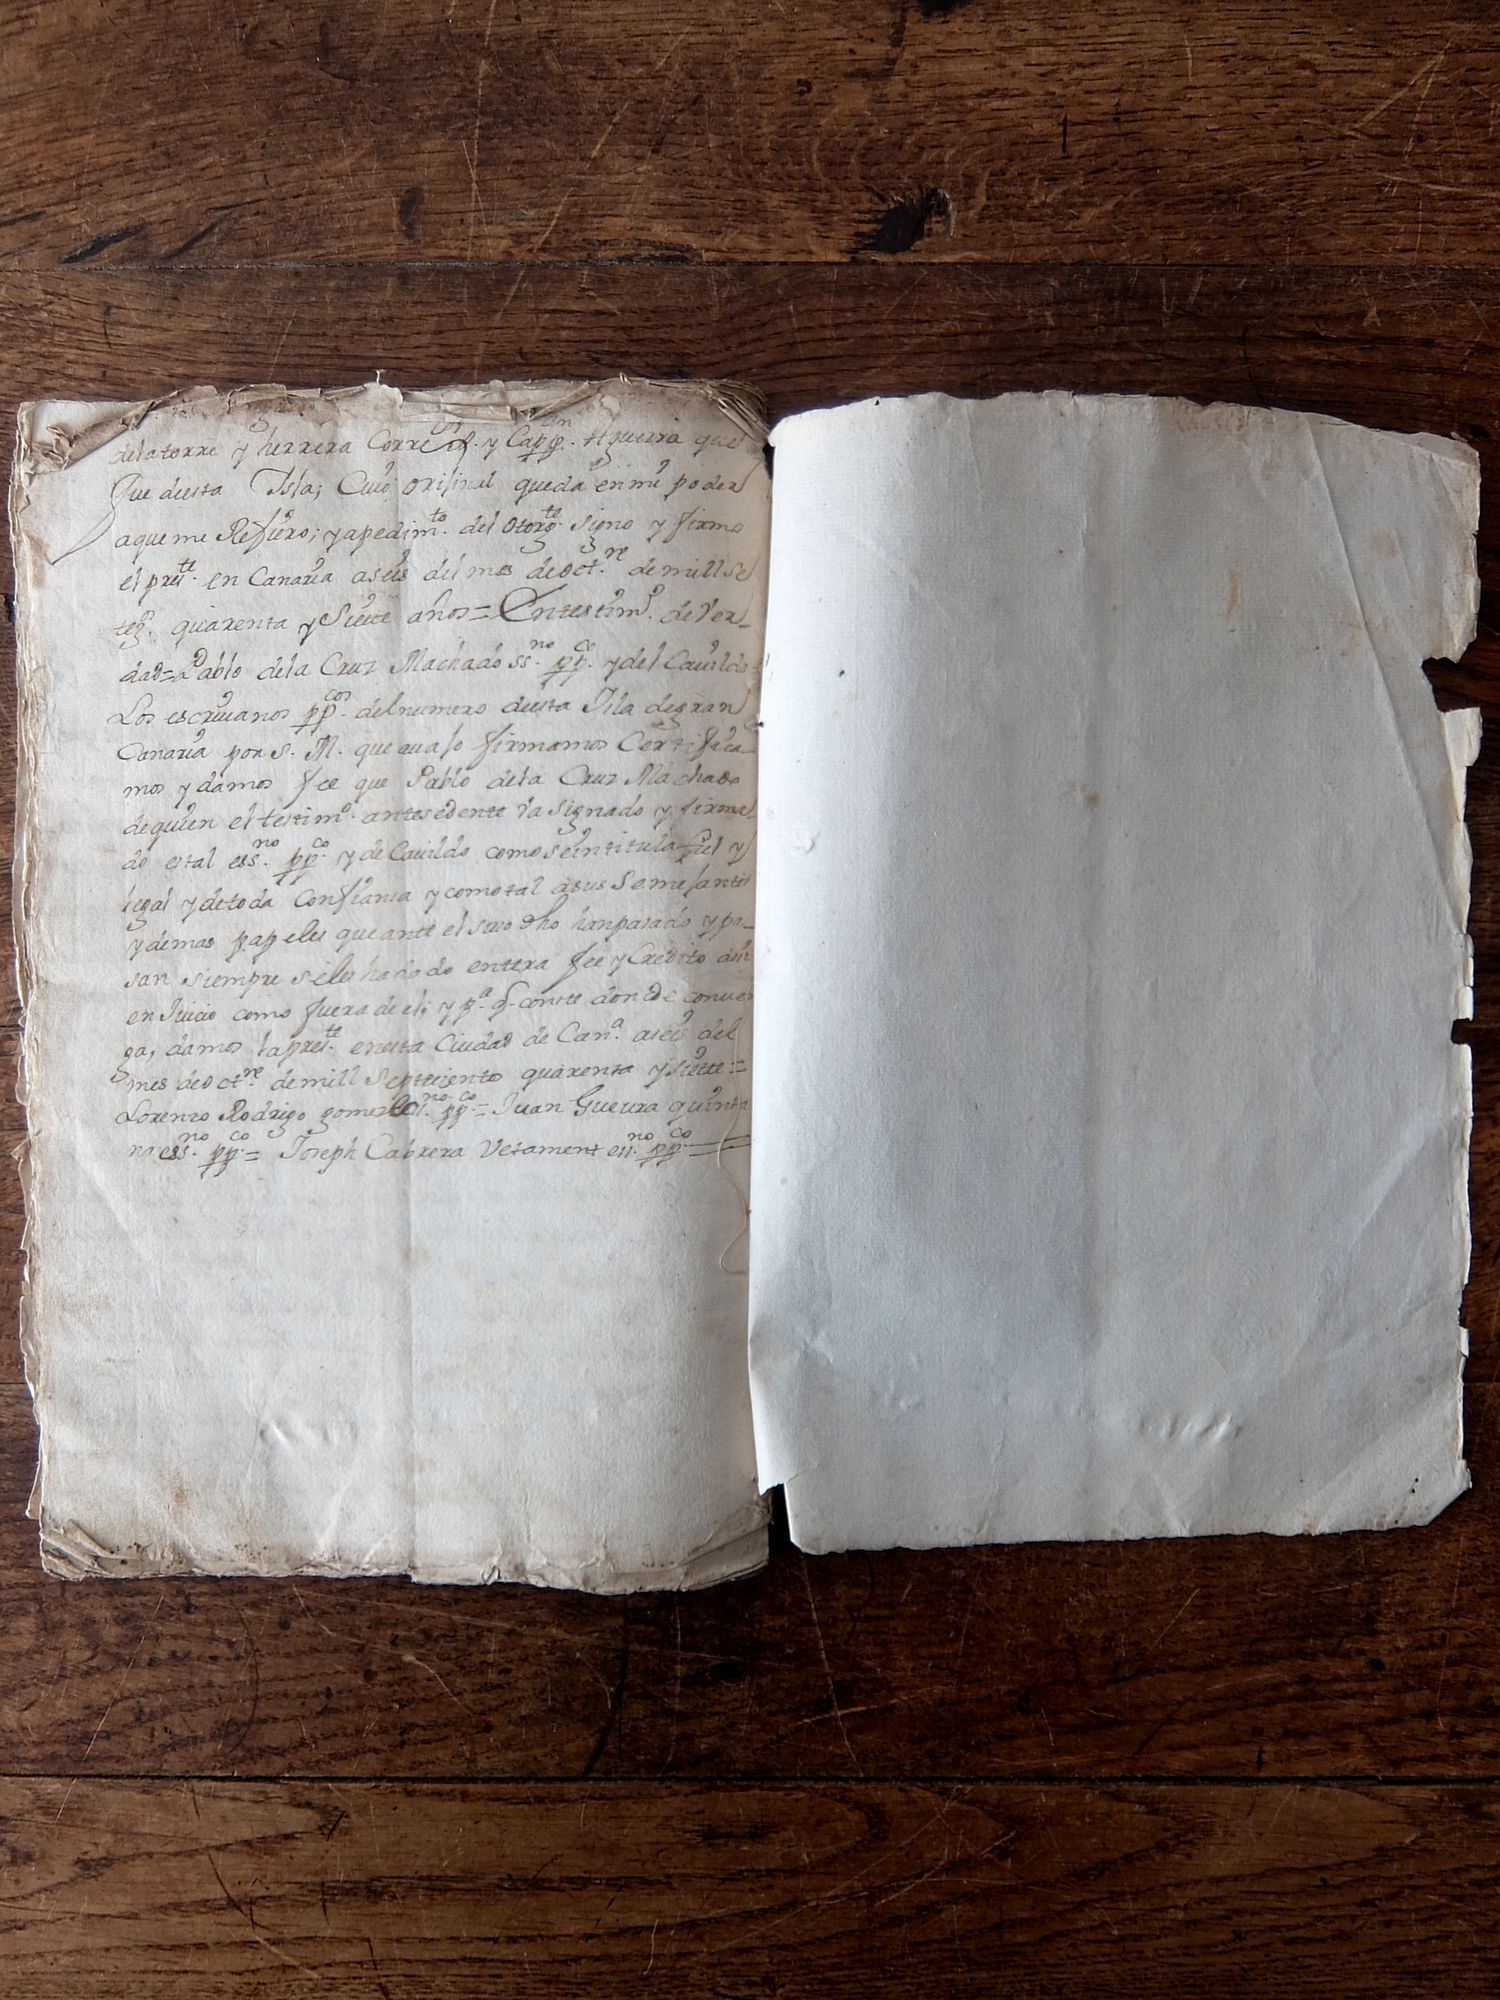 dela torre y herrera Corre^(or) y Capp^(an). Aguerra que
fue deesta Isla; Cuio orijinal queda en mi poder
aque me Refiero; y apedim^(to). del Otorg^(te). signo y firmo
el pres^(te). en Canaria aseis del mes de oct^(re). de mill se
tez^(s). quarenta y Siete años = Entestim^(o). de Ver_
dad = Pablo dela Cruz Machado ss^(no). pp^(co). y del Cavildo
Los escrivanos pp^(cos). del numero deesta Isla degran
Canaria por S. M. que avajo firmamos Certifica_
mos y damos fee que Pablo dela Cruz Machado
dequien el testim^(o). antesedente va signado y firma
do es tal ess^(no). pp^(co). y de Cavildo como se intitula fiel y
legal y detoda Confianza y como tal asus Semejantes
y demas papeles que ante el suso dho han pasado y pa_
san siempre seles ha dado entera fee y Credito asi
en Juicio como fuera de el; y p^(a). q. conste donde conven
ga, damos la pres^(te). enesta Ciudad de Can^(a). aseis del
mes de oct^(re). de mill Septecientos quarenta y siete =
Lorenzo Rodrigo gomez ess^(no). pp^(co). = Juan Guerra quinta
na ess^(no). pp^(co). = Joseph Cabrera Vetament ess^(no). pp^(co).